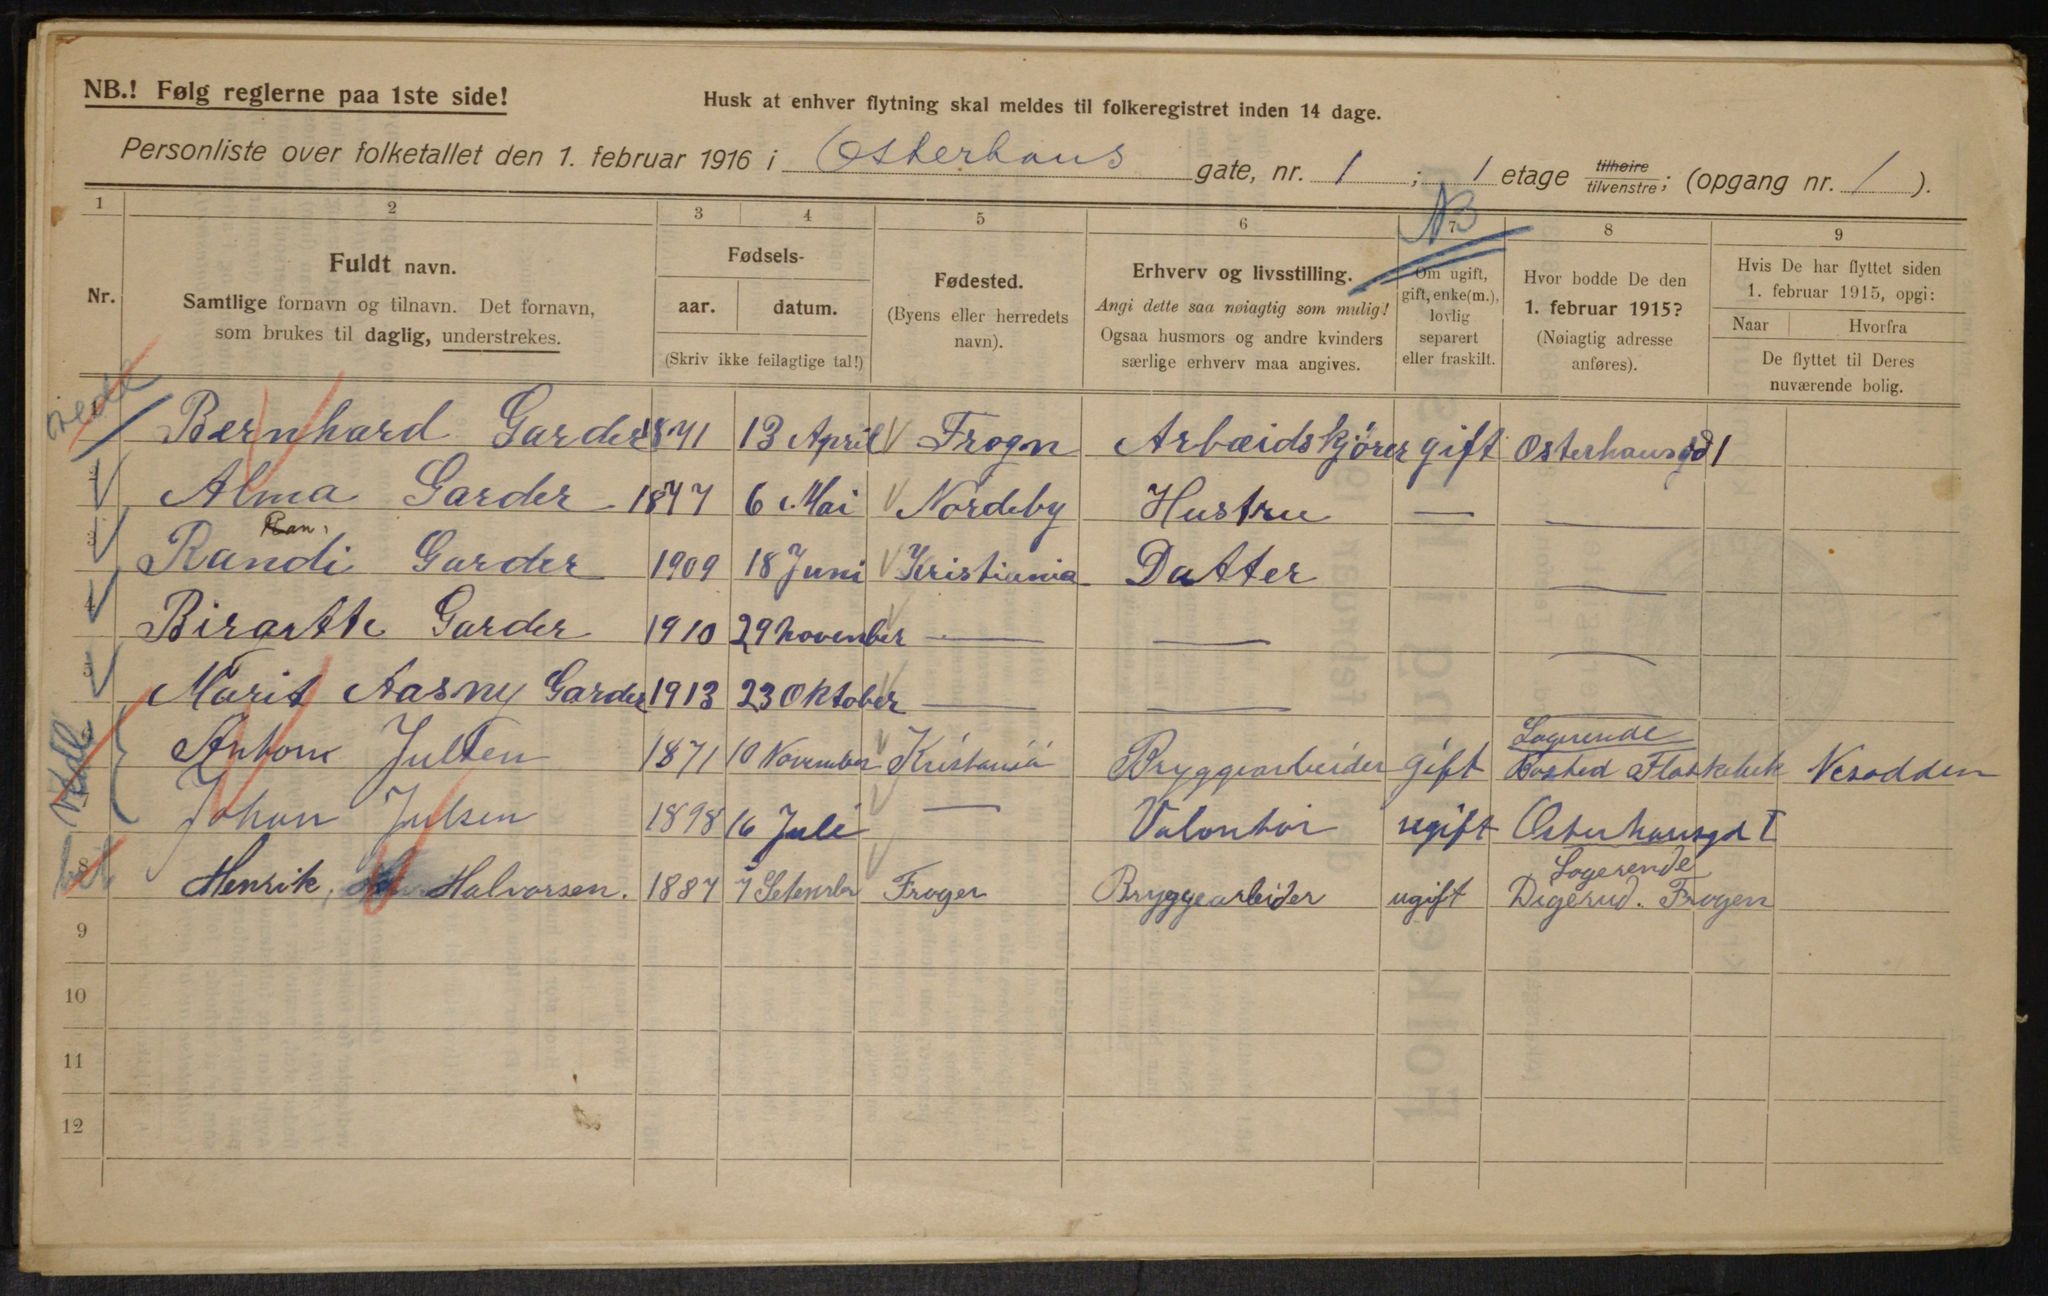 NB.! Følg reglerne paa 1ste side!
Husk at enhver flytning skal meldes til folkeregistret inden 14 dage.
Personliste over folketallet den 1. februar 1916 i Osterhaus gate, nr. 1 ; 1 etage tilhøire tilvenstre; (opgang nr. 1 ).
NB
1 2 3 4 5 6 7 8 9
Nr.
Fuldt navn.
Samtlige fornavn og tilnavn. Det fornavn,
som brukes til daglig, understrekes.
Fødsels-
aar. datum.
(Skriv ikke feilagtige tal!)
Fødested.
(Byens eller herredets
navn).
Erhverv og livsstilling.
Angi dette saa nøiagtig som mulig!
Ogsaa husmors og andre kvinders
særlige erhverv maa angives.
Om ugift,
gift, enke(m.),
lovlig
separert
eller fraskilt.
Hvor bodde De den
1. februar 1915?
(Nøiagtig adresse
anføres).
Hvis De har flyttet siden
1. februar 1915, opgi:
Naar Hvorfra
De flyttet til Deres
nuværende bolig.
1 Bernhard Garder 1871 13 April Frogn Arbeidskjører gift Osterhausgd 1
2 Alma Garder 1877 6 Mai Nordeby Hustru — —
Ran
3 Randi Garder 1909 18 Juni Kristiania Datter —
4 Birgitte Garder 1910 29 november — — —
5 Marit Aasny Garder 1913 23 Oktober — —
Logerende
Anton Julsen 1871 10 November Kristania Bryggearbeider gift Bosted Flaskebek Nesodden
Johan Julsen 1898 16 Juli — Volontør ugift Osterhausgd I
Logerende
8 Henrik Halvorsen. 1887 7 Setember Frogen Bryggearbeider ugift Digerud. Frogen
9
10
11
12